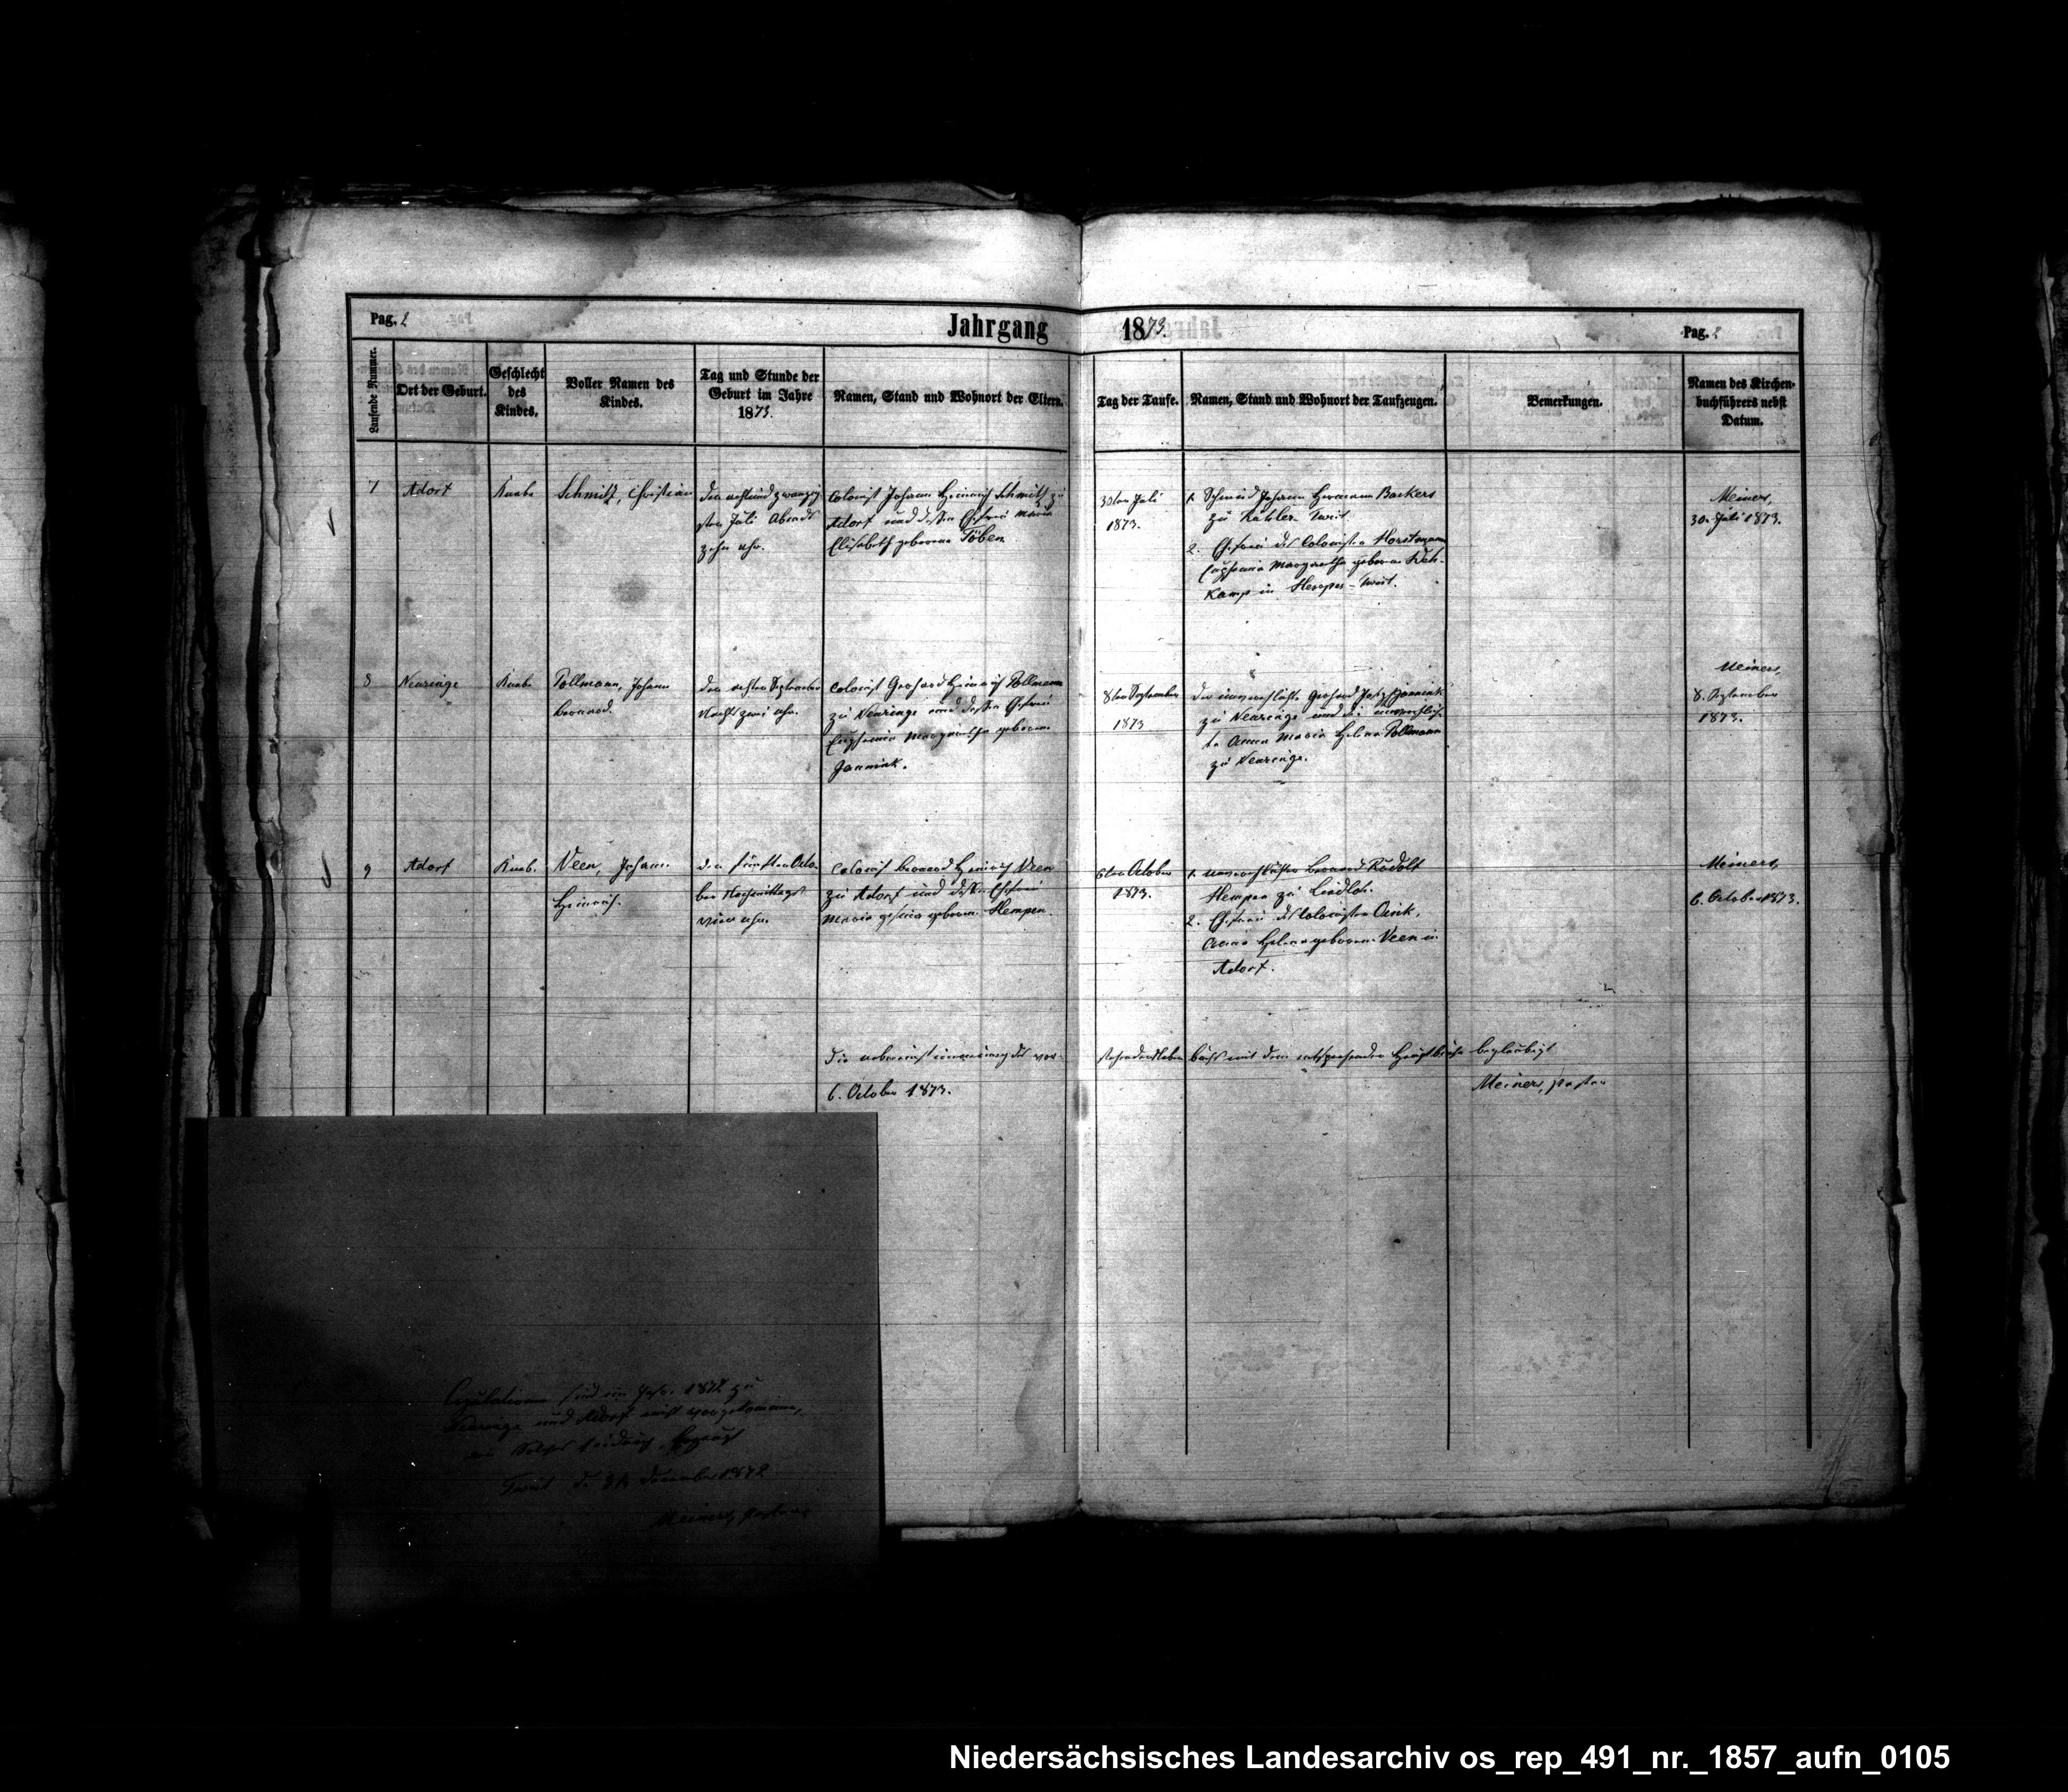 Pag. 2
Jahrgang 1873.
Pag. 2
Laufende Nummer.
Ort der Geburt.
Geschlecht des Kindes.
Voller Namen des Kindes.
Tag und Stunde der Geburt im Jahre 1873.
Namen, Stand und Wohnort der Eltern.
Tag der Taufe.
Namen, Stand und Wohnort der Taufzeugen.
Bemerkungen.
Namen des Kirchenbuchführers nebst Datum.
7
Adorf
Knabe
Schmitz, Christian
den achtundzwanzig
sten Juli Abends
zehn Uhr.
Colonist Johann Heinrich Schmitz zu
Adorf und dessen Ehefrau Maria
Elisabeth geborene Töben
30ten Juli
1873.
1. Schmied Johann Hermann Backers
zu Twist.
2. Ehefrau des Colonisten Horstmann
Euphemia Margaretha geborene
kamp in Hemper-Twist.
Meiners,
30. Juli 1873.
8
Neuringe
Knabe
Pollmann, Johann
Bernard.
den achten September
Nachts zwei Uhr.
Colonist Gerhard Heinrich Pollmann
zu Neuringe und dessen Ehefrau
Euphemia Margaretha geborene
Jannink.
8ten September
1873
der unverehelichte Gerhard Joseph Jannink
zu Neuringe und die unverehelich-
te Anna Maria Helena Pollmann
zu Neuringe.
Meiners,
8. September
1873.
9
Adorf
Knab.
Veen, Johann
Heinrich.
den fünften Octo-
ber Nachmittags
vier Uhr.
Colonist Bernard Heinrich Veen
zu Adorf und dessen Ehefrau
Maria Gesina geborene Hempen.
6ten October
1873.
1. unverehelichter Bernard Rudolf
Hempen zu
2. Ehefrau des Colonisten
Anna Helena geborene Veen in
Adorf.
Meiners,
6. October 1873.
Die Uebereinstimmung des vor-
stehenden buchs mit dem entsprechenden Hauptbuche beglaubigt
6. October 1873.
Meiners, pastor
Copulationen sind im Jahre 1872 zu
Neuringe und Adorf nicht vorgekommen,
ein Solches hiedurch bezeugt
Twist d. 31 December 1872
Meiners, pastor
Niedersächsisches Landesarchiv os_rep_491_nr._1857_aufn_0105